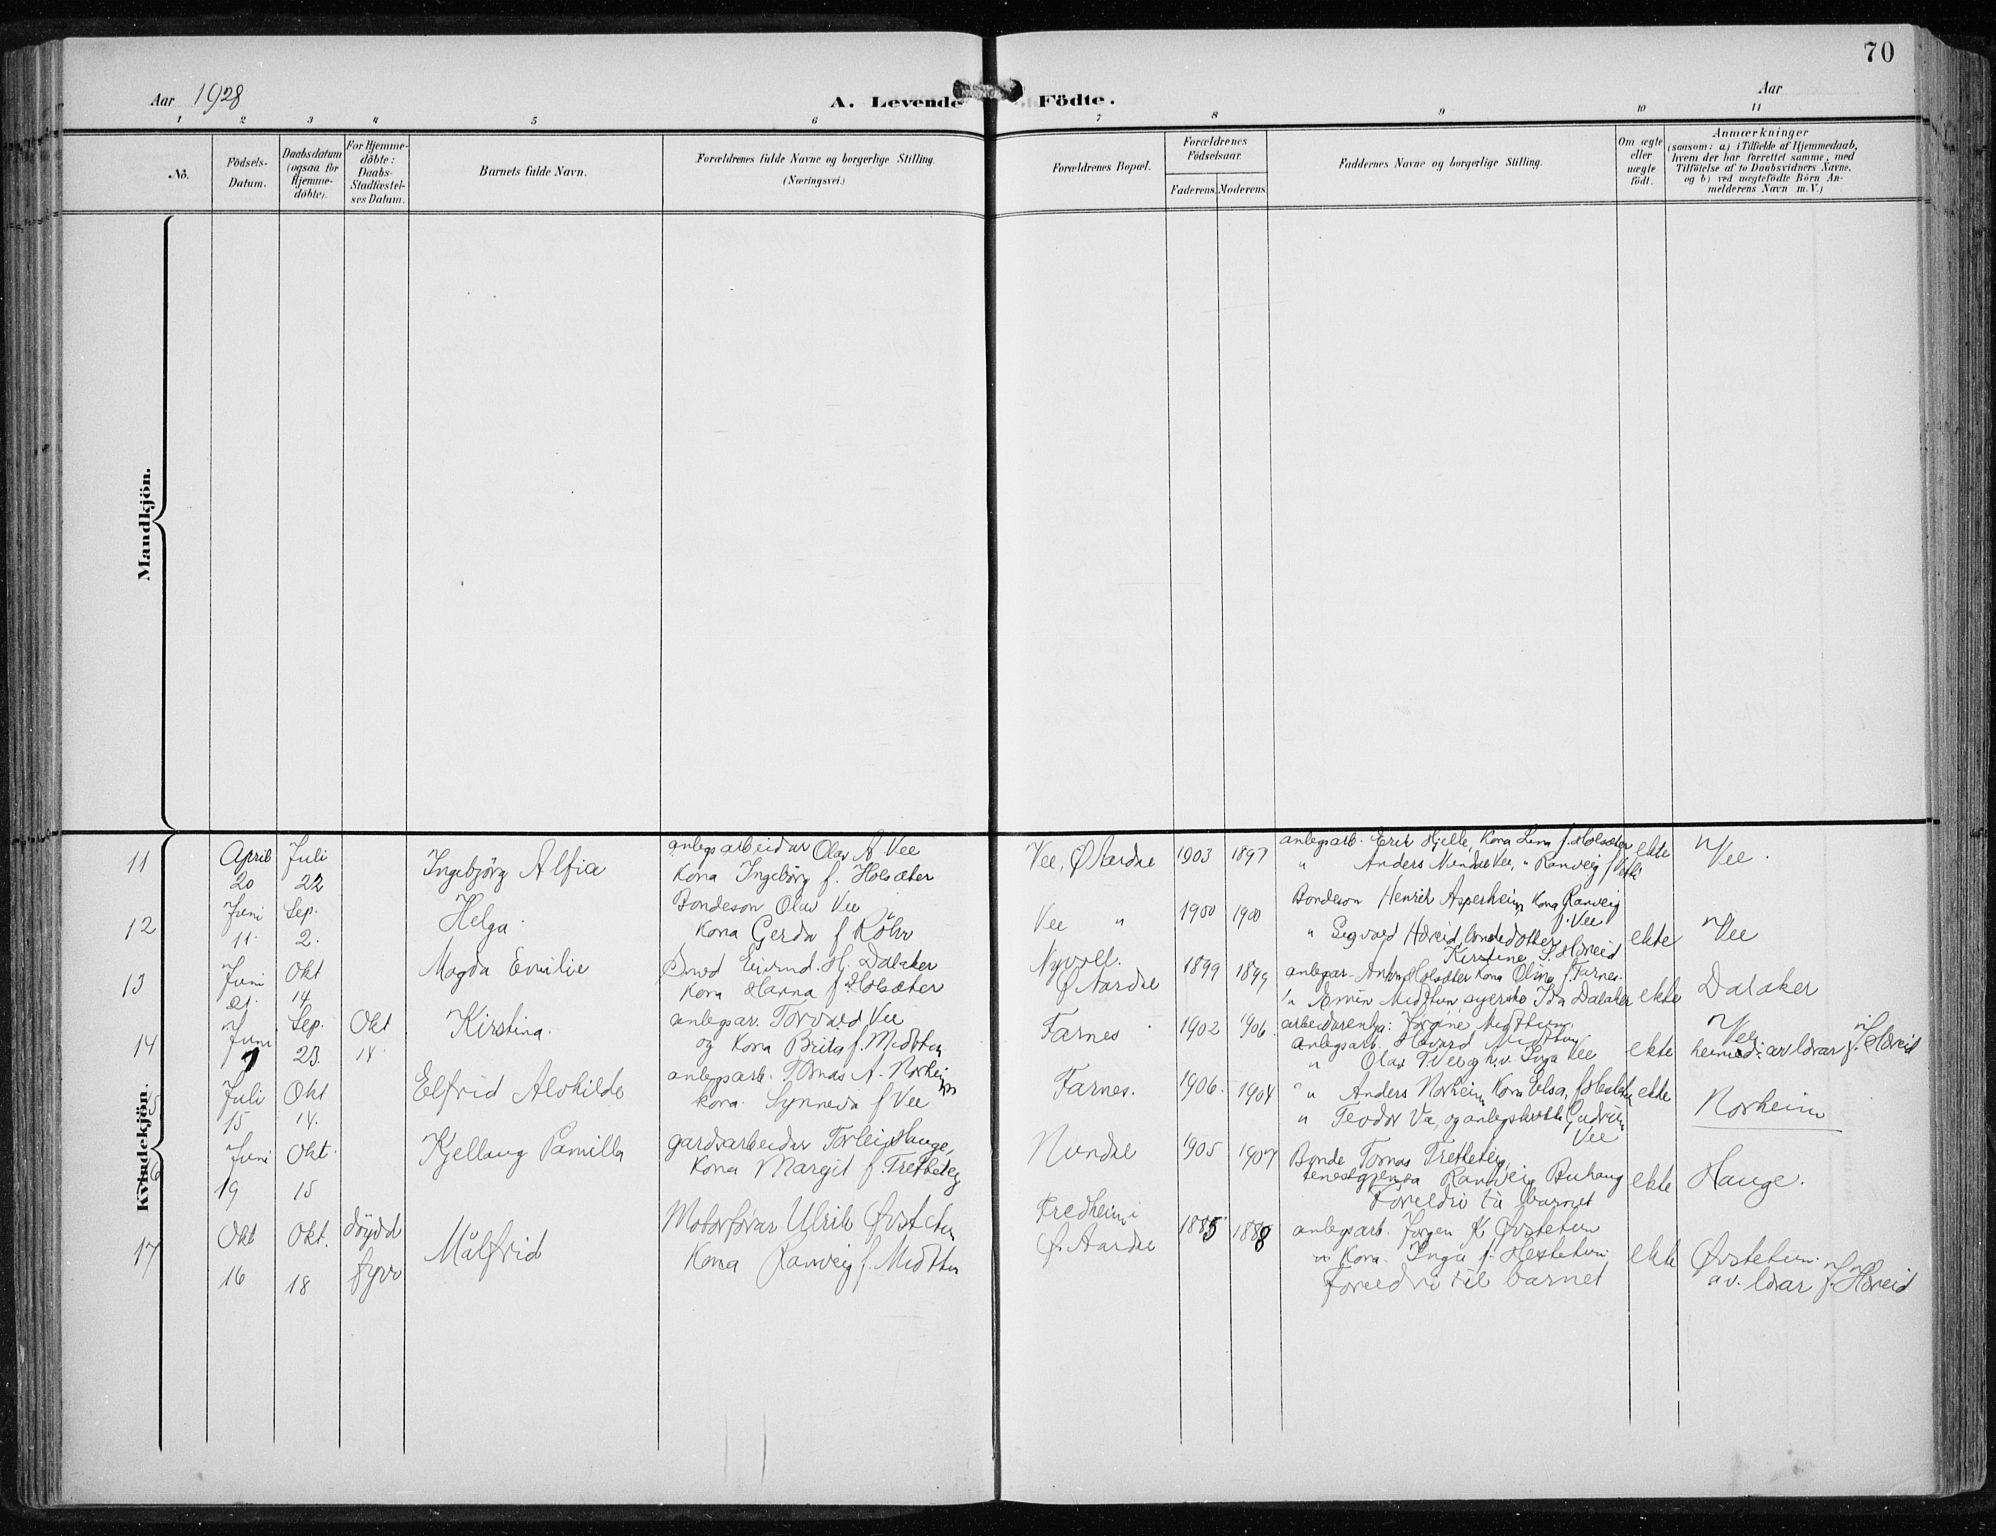 70
Aar 1928
A. Levende Födte.
Aar
1 2 3 4 5 6 7 8 9 10 11
Nô.
Födsels-Datum.
Daabsdatum (ogsaa for Hjemme-döbte).
For Hjemme-döbte: Daabs-Stadfæstel-ses Datum.
Barnets fulde Navn.
Forældrenes fulde Navne og borgerlige Stilling.
(Næringsvei.)
Forældrenes Bopæl.
Forældrenes Födselsaar.
Faderens. Moderens.
Faddernes Navne og borgerlige Stilling.
Om ægte eller uægte födt.
Anmærkninger
(saasom: a) i Tilfælde af Hjemmedaab,
hvem der har forrettet samme, med
Tilföielse af to Daabsvidners Navne,
og b) ved uægtefödte Börn An-
melderens Navn m. V.)
Mandkjön.
Kvindekjön.
11 April 20 Juli 22 Ingebjörg Alfia
anlegsarbeidar Olav A. Vee
Kona Ingebörg f. Holsæter
Vee, Ø Aardre 1903 1897
anlegsarb. Erik Hjelle, Kona Lina f. Holsæter
" Anders Nundre Vee, " Ranveig f.
ekte Vee.
12 Juni 11. Sep. 2. Helga.
Bondeson Olav Vee
Kona Gerda f
Vee " 1900 1900
Bondeson Henrik Asperheim Kona Ranveig
f. Vee
" Sigvard Hæreid, bondedotter
Kirstine S. Hæreid
ekte Vee
13 Juni 21. Okt 14. Magda Emilie
Smed Eivind. H. Dalaker
Kona Hanna f Holsæter
Ø Aardre 1899 1899
Anton Holsæter Kona Olina f. Farnes.
" Midttun syerske Ida Dalaker
ekte Dalaker
14 Juni 7 Sep. 23. Okt 14. Kirstina.
anlegsar. Torvald Vee
og Kona Brita f. Midttun
Farnes 1902 1906
Jorgine Midttun
anlegsarb. Håvard Midttun
" Olav T Vee og h.v. Inga Vee
ekte Vee.
heimed. av lærar J. Hæreid
15 Juli 15 Okt 14. Elfrid Alvhilde
anlegsarb. Tomas A. Norheim
kona. Synneva f Vee
Farnes. 1906. 1904
" Anders Norheim Kona Elsa,
" Teodor Va, og Gudrun
Vee
ekte Norheim
16 Juni 19 Okt. 15 Kjellaug Pamilla
gardsarbeidar Torleif Hauge,
Kona Margit f. Tretteteig
Nundre 1905 1907
Bonde Tomas Tretteteig,
Ranveig Buhaug
Foreldri til barnet
ekte Hauge.
17 Okt 16 Okt. 18 döydd fyrr Målfrid
Motorförar Ulrik Øvstetun
Kona Ranveig f. Midttun
Fredheim i
Ø. Aardre 1885 1888
anlegsarb. Jørgen K Øvstetun
" Kona. Inga f. Hestetun
Foreldri til barnet
ekte Øvstetun.
av. lærar J. Hæreid